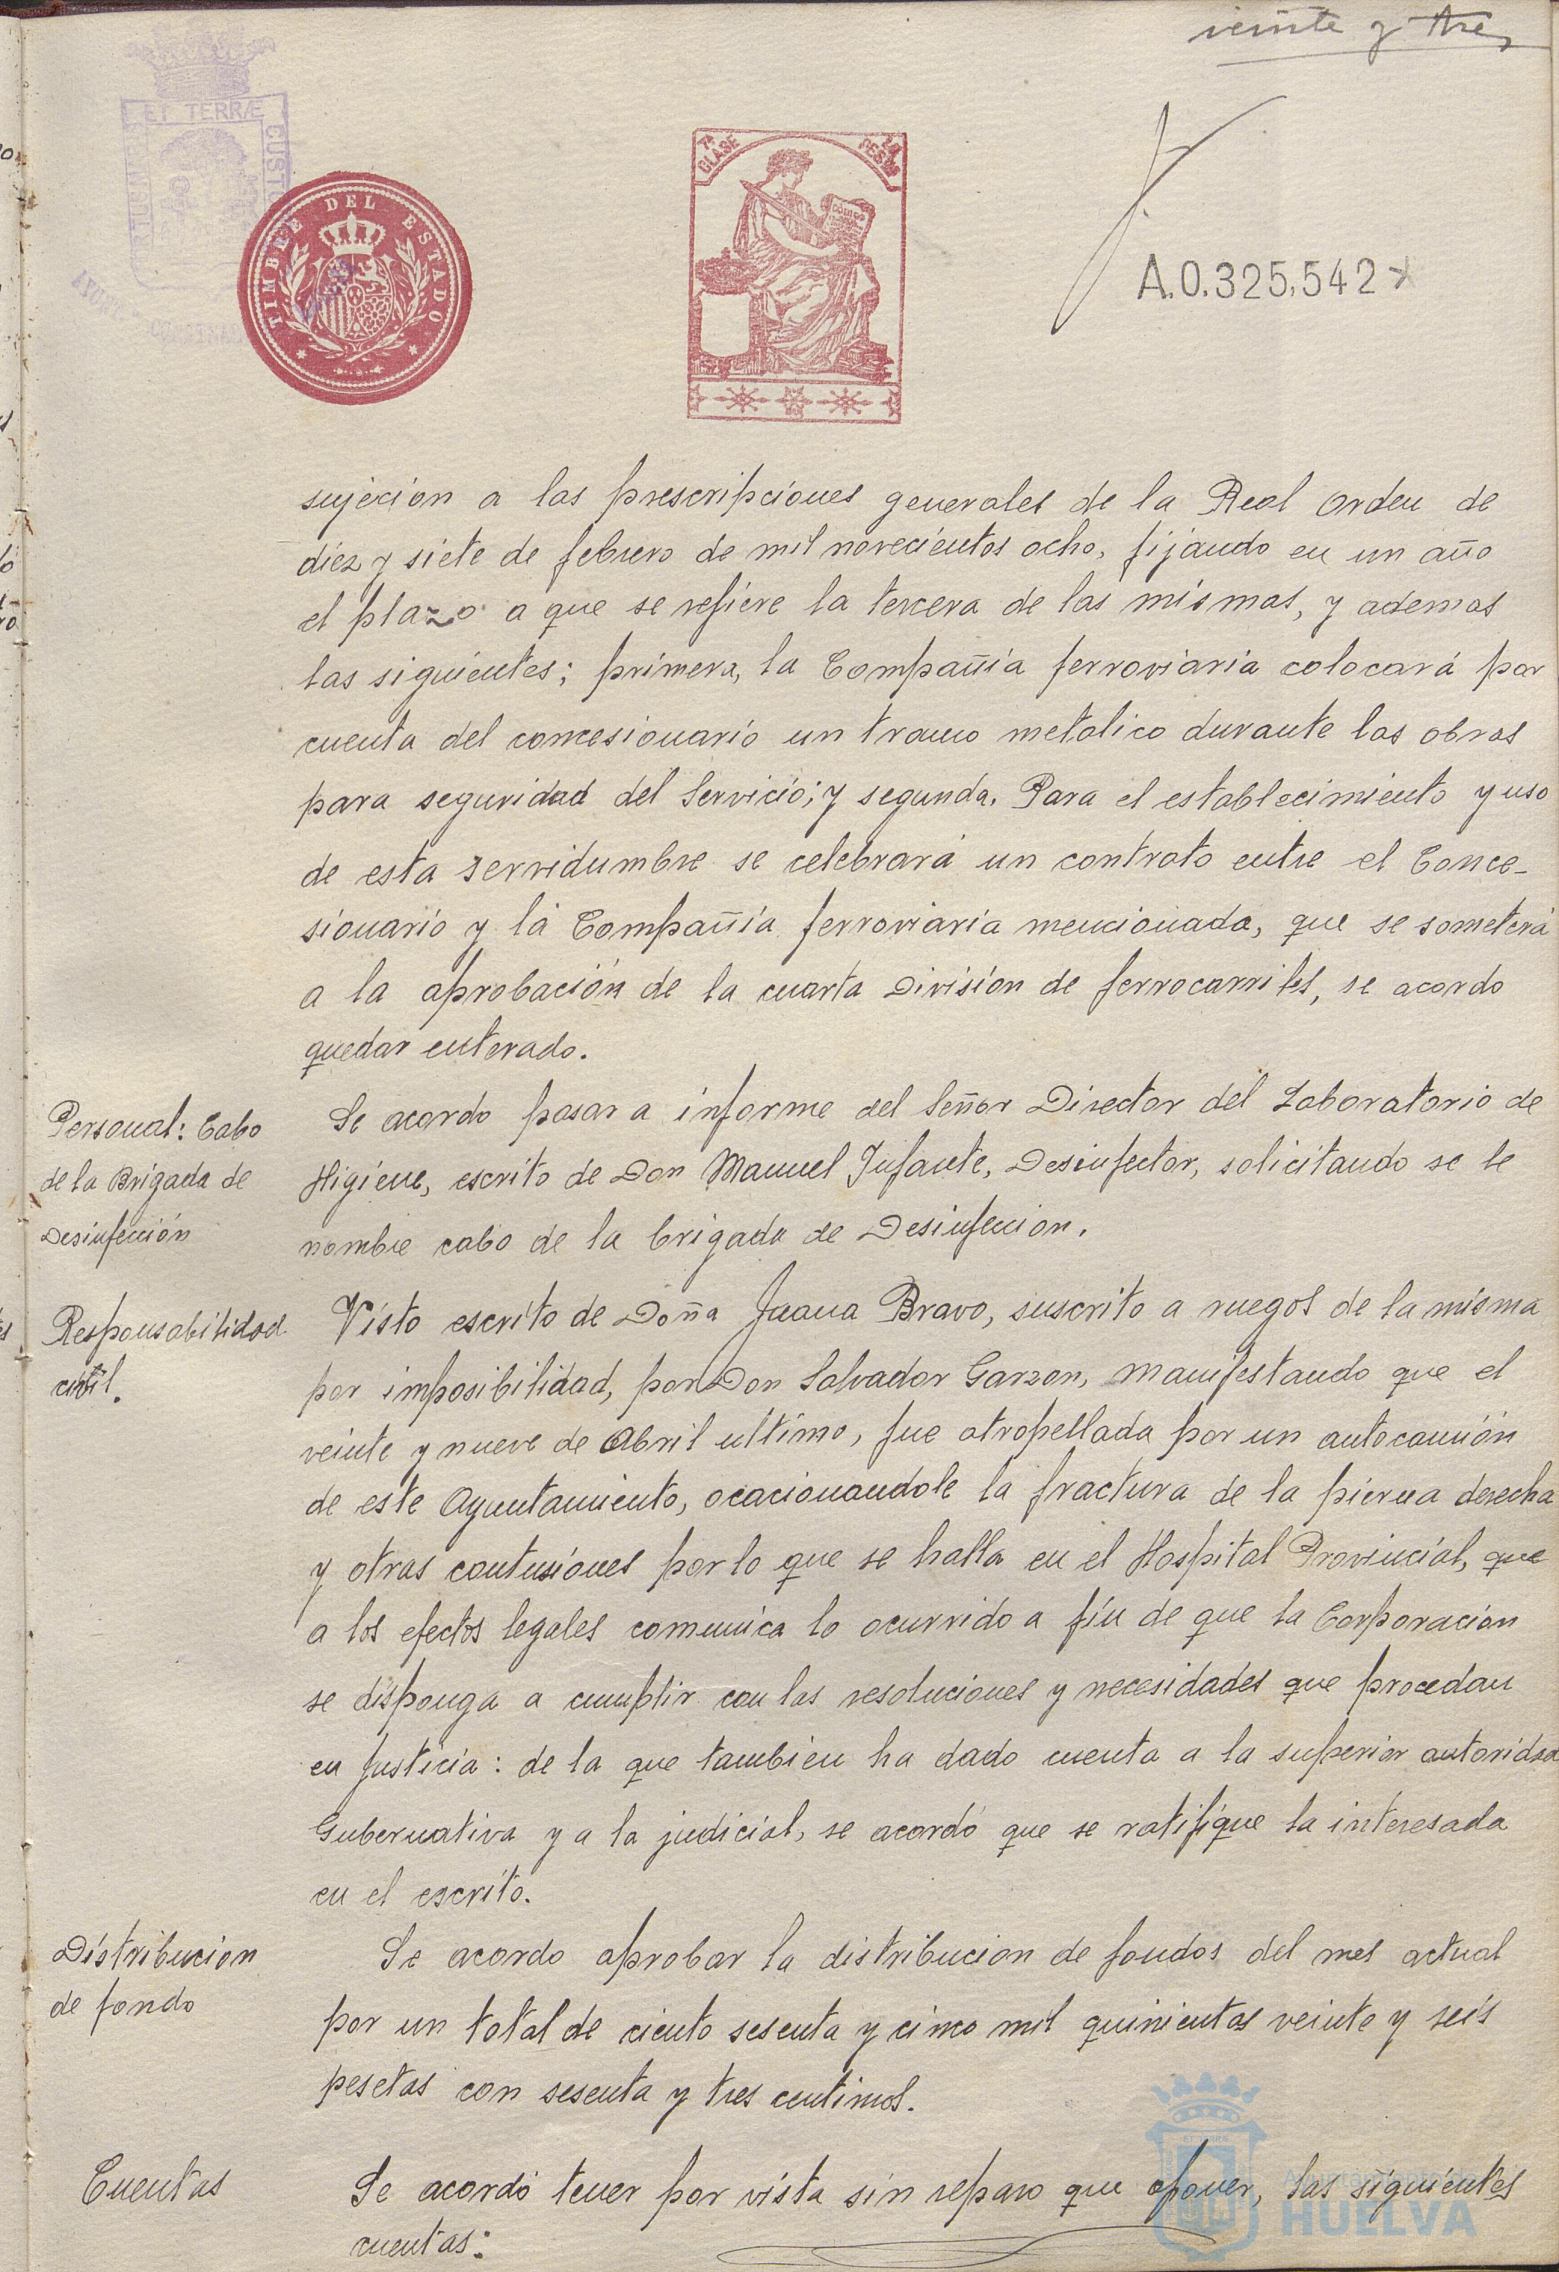 veinte y tres
ET TERRÆ
CUSTO
TIMBRE DEL ESTADO
7ª CLASE
PESETAS
A.0.325,542
sujecion a las prescripciones generales de la Real orden de
diez y siete de febrero de mil novecientos ocho, fijando en un año
el plazo a que se refiere la tercera de las mismas, y ademas
las siguientes; primera, la Compañia ferroviaria colocará por
cuenta del concesionario un tramo metalico durante las obras
para seguridad del Servicio; y segunda. Para el establecimiento y uso
de esta servidumbre se celebrará un contrato entre el Conce-
sionario y la Compañia ferroviaria mencionada, que se someterá
a la aprobación de la cuarta Division de ferrocarriles, se acordo
quedar enterado.
Personal: Cabo
de la Brigada de
Desinfección
Se acordo pasar a informe del Señor Director del Laboratorio de
Higiene, escrito de Don Manuel Infante, Desinfector, solicitando se le
nombre cabo de la brigada de Desinfeccion.
Responsabilidad
civil.
Visto escrito de Doña Juana Bravo, suscrito a ruegos de la misma
por imposibilidad, por Don Salvador Garzon, manifestando que el
veinte y nueve de Abril ultimo, fue atropellada por un autocamión
de este Ayuntamiento, ocacionandole la fractura de la pierna derecha
y otras contusiones por lo que se halla en el Hospital Provincial, que
a los efectos legales comunica lo ocurrido a fin de que la Corporacion
se disponga a cumplir con las resoluciones y necesidades que procedan
en Justicia: de la que tambien ha dado cuenta a la superior autoridad
Gubernativa y a la judicial, se acordó que se ratifique la interesada
en el escrito.
Distribucion
de fondo
Se acordo aprobar la distribucion de fondos del mes actual
por un total de ciento sesenta y cinco mil quinientas veinte y seis
pesetas con sesenta y tres centimos.
Cuentas
Se acordó tener por vista sin reparo que oponer, las siguientes
cuentas:
Ayuntamiento de
HUELVA